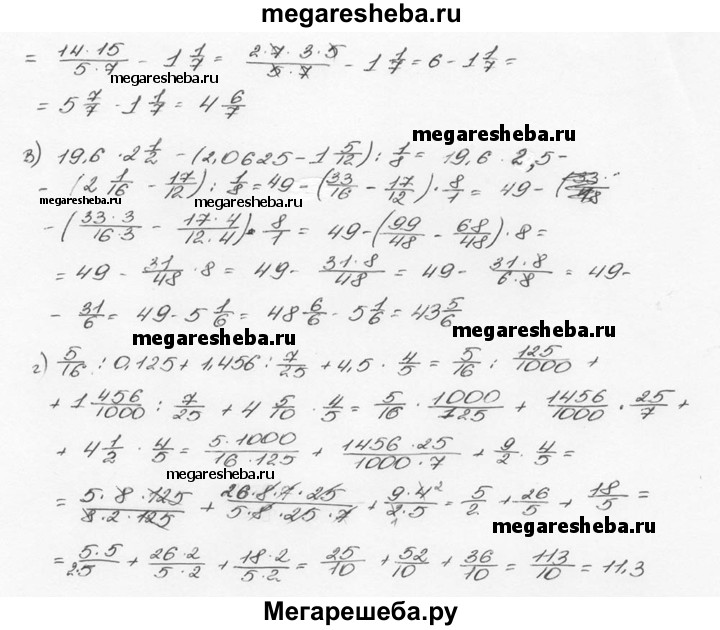 megaresheba.ru
= 14·15/5·7 - 1 1/7 = 2·7·3·5/5·7 - 1 1/7 = 6 - 1 1/7 =
megaresheba.ru megaresheba.ru
= 5 7/7 - 1 1/7 = 4 6/7
megaresheba.ru
в) 19,6 · 2 1/2 - (2,0625 - 1 5/12) : 1/8 = 19,6 · 2,5 -
- (2 1/16 - 17/12) : 1/8 = 49 - (33/16 - 17/12) · 8/1 = 49 - (
megaresheba.ru megaresheba.ru
- (33·3/16·3 - 17·4/12·4) · 8/1 = 49 - (99/48 - 68/48) · 8 =
= 49 - 31/48 · 8 = 49 - 31·8/48 = 49 - 31·8/6·8 = 49 -
- 31/6 = 49 - 5 1/6 = 48 6/6 - 5 1/6 = 43 5/6
megaresheba.ru megaresheba.ru
г) 5/16 : 0,125 + 1,456 : 7/25 + 4,5 · 4/5 = 5/16 : 125/1000 +
+ 1 456/1000 : 7/25 + 4 5/10 · 4/5 = 5/16 · 1000/125 + 1456/1000 · 25/7 +
+ 4 1/2 · 4/5 = 5·1000/16·125 + 1456·25/1000·7 + 9/2 · 4/5 =
megaresheba.ru
= 5·8·125/8·2·125 + 26·8·7·25/5·8·25·7 + 9·4²/2·5 = 5/2 + 26/5 + 18/5 =
megaresheba.ru
= 5·5/2·5 + 26·2/5·2 + 18·2/5·2 = 25/10 + 52/10 + 36/10 = 113/10 = 11,3
Мегарешеба.ру